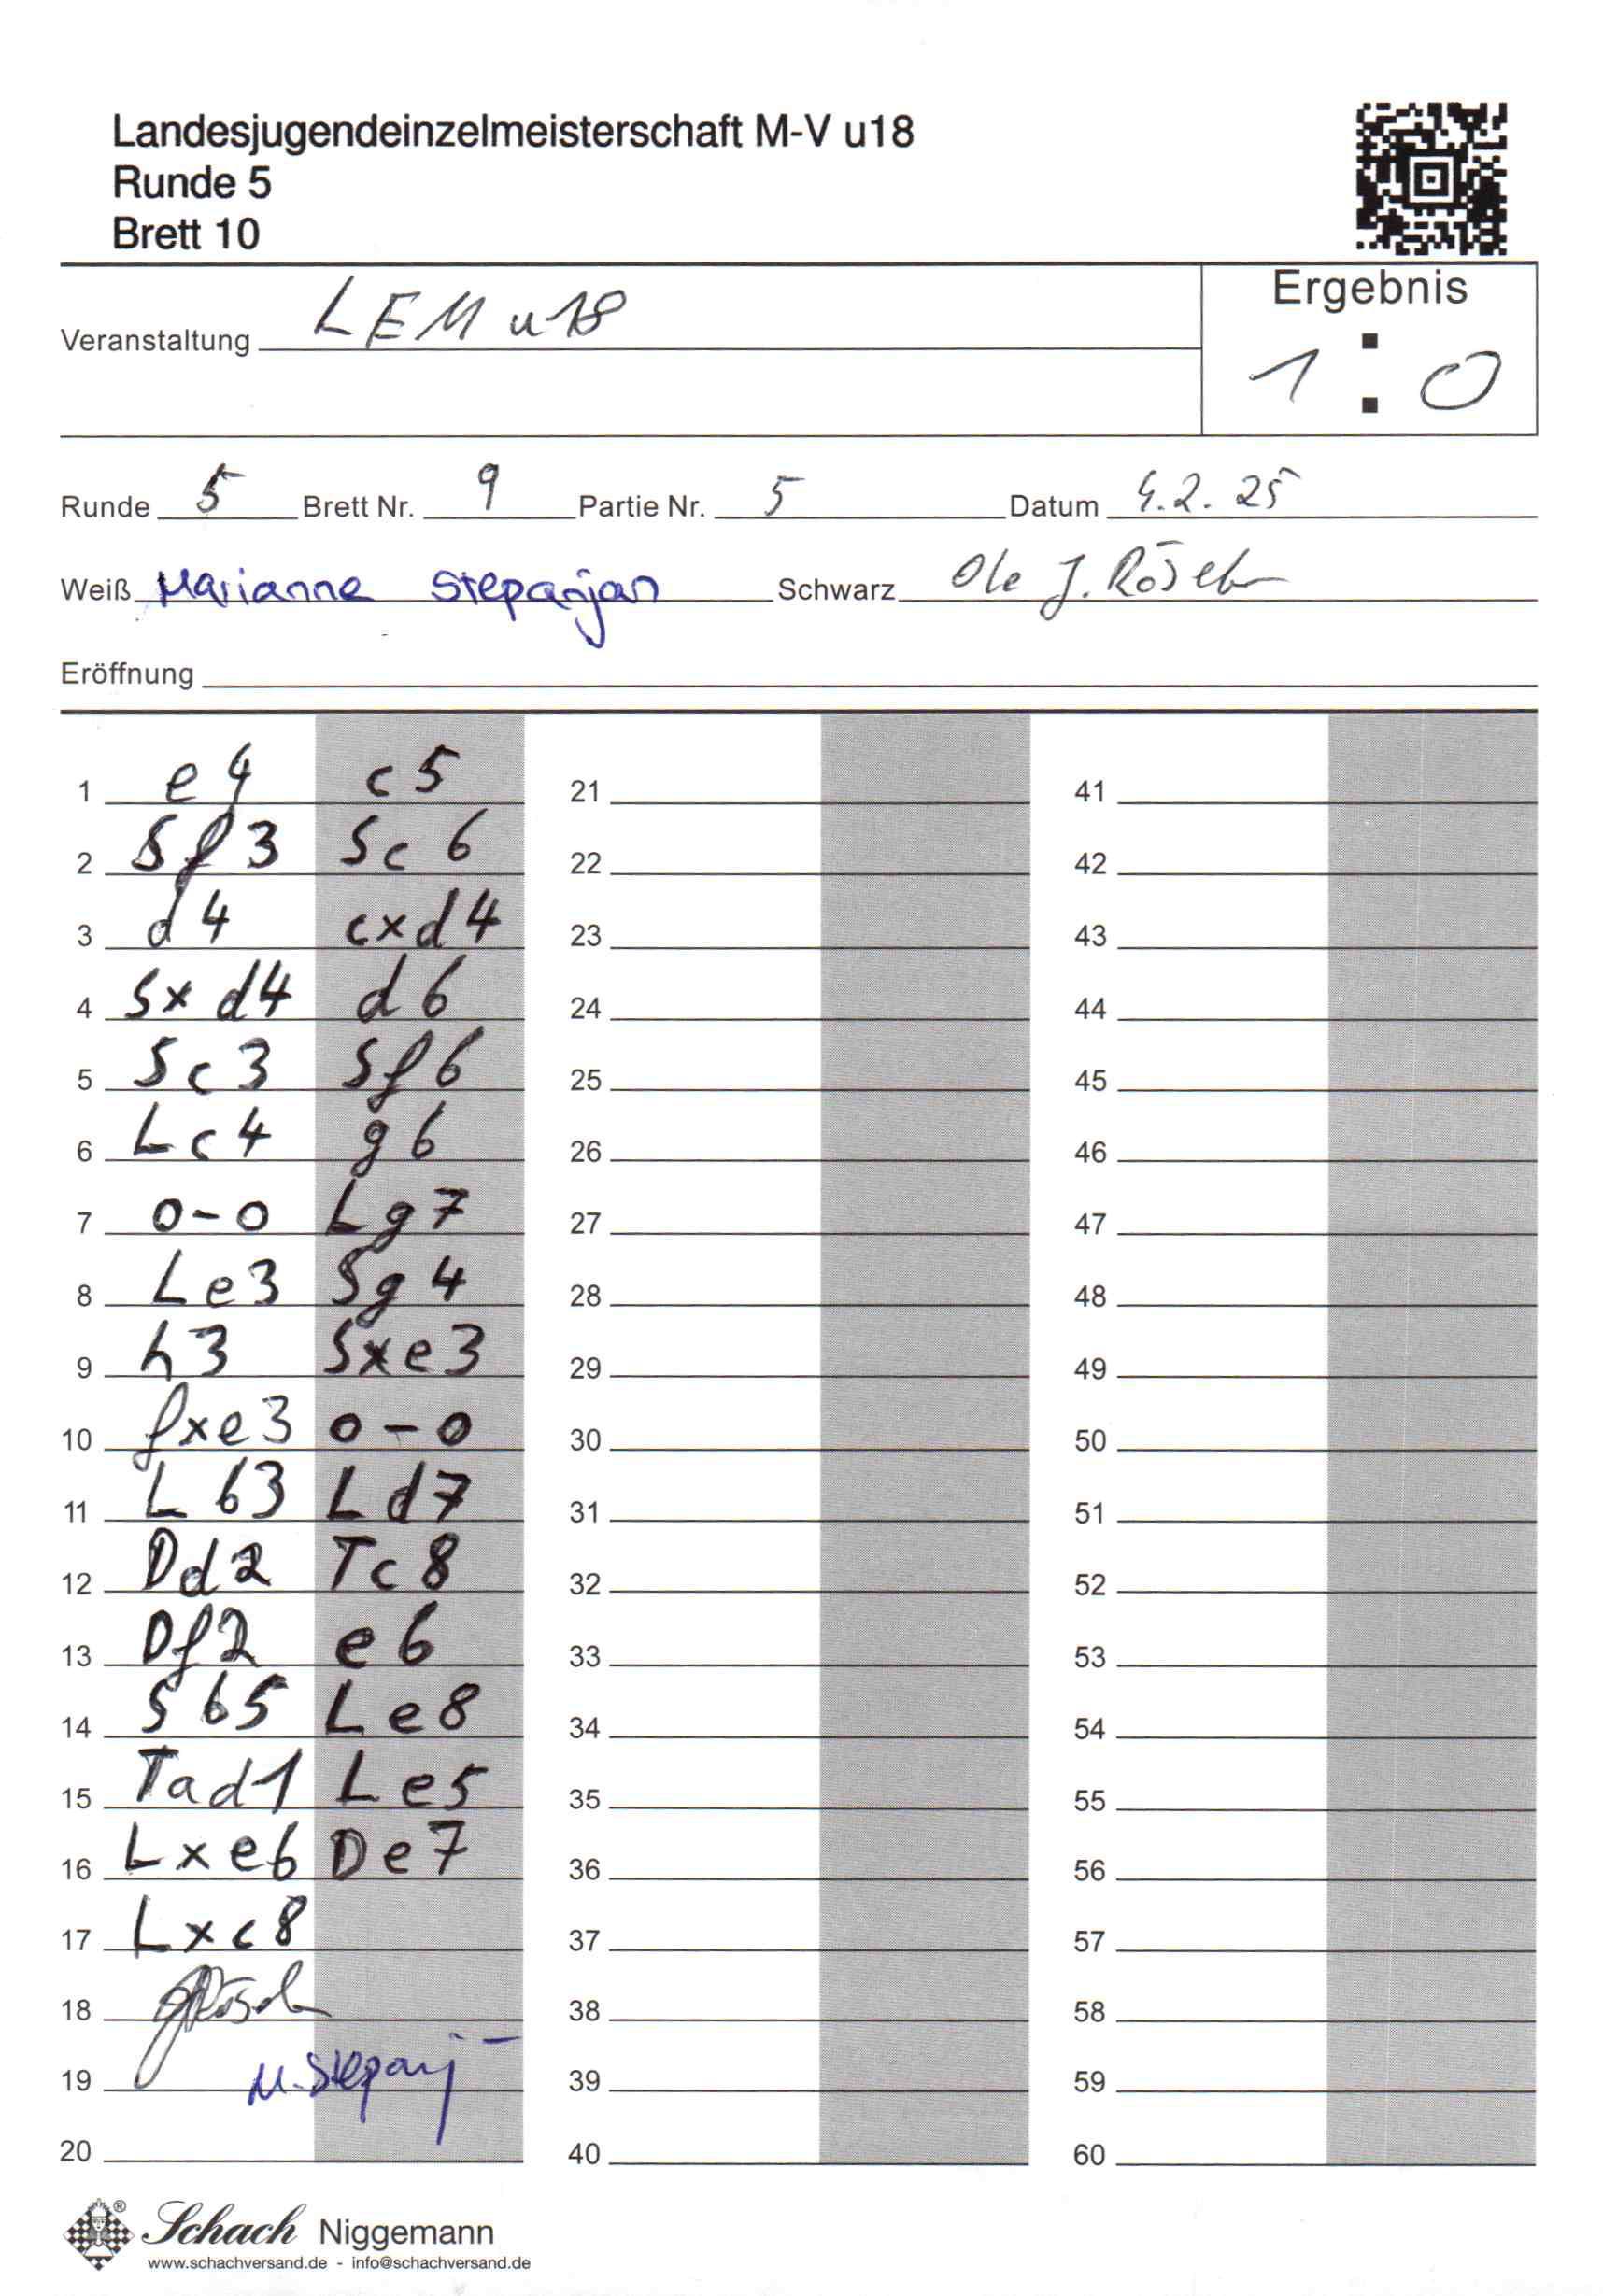 Landesjugendeinzelmeisterschaft M-V u18
Runde 5
Brett 10
Ergebnis
Veranstaltung LEM u18
1 : 0
Runde 5 Brett Nr. 9 Partie Nr. 5 Datum 4.2.25
Weiß Marianne Stepanjan Schwarz Ole J.
Eröffnung
1 e4 c5 21 41
2 Sf3 Sc6 22 42
3 d4 cxd4 23 43
4 Sxd4 d6 24 44
5 Sc3 Sf6 25 45
6 Lc4 g6 26 46
7 0-0 Lg7 27 47
8 Le3 Sg4 28 48
9 h3 Sxe3 29 49
10 fxe3 0-0 30 50
11 Lb3 Ld7 31 51
12 Dd2 Tc8 32 52
13 Df2 e6 33 53
14 Sb5 Le8 34 54
15 Tad1 Le5 35 55
16 Lxe6 De7 36 56
17 Lxc8 37 57
18 38 58
19 M. Stepanj 39 59
20 40 60
Schach Niggemann
www.schachversand.de - info@schachversand.de